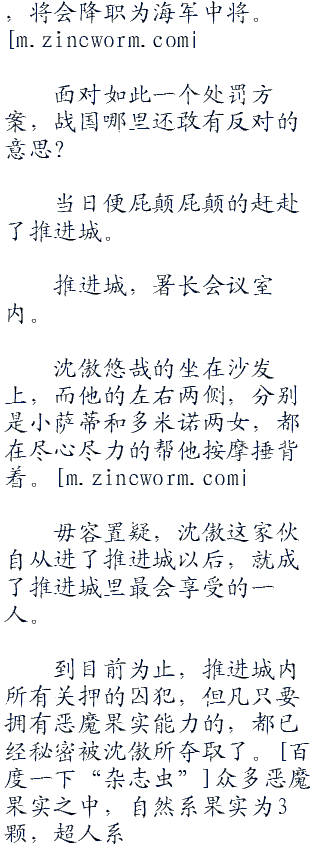 ，将会降职为海军中将。
[m.zincworm.com|
面对如此一个处罚方
案，战国哪里还敢有反对的
意思？
当日便屁颠屁颠的赶赴
了推进城。
推进城，署长会议室
内。
沈傲悠哉的坐在沙发
上，而他的左右两侧，分别
是小萨蒂和多米诺两女，都
在尽心尽力的帮他按摩捶背
着。[m.zincworm.com|
毋容置疑，沈傲这家伙
自从进了推进城以后，就成
了推进城里最会享受的一
人。
到目前为止，推进城内
所有关押的囚犯，但凡只要
拥有恶魔果实能力的，都已
经秘密被沈傲所夺取了。[百
度一下“杂志虫”]众多恶魔
果实之中，自然系果实为3
颗，超人系